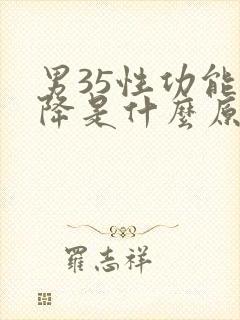 男35性功能
降是什麼原
羅志祥